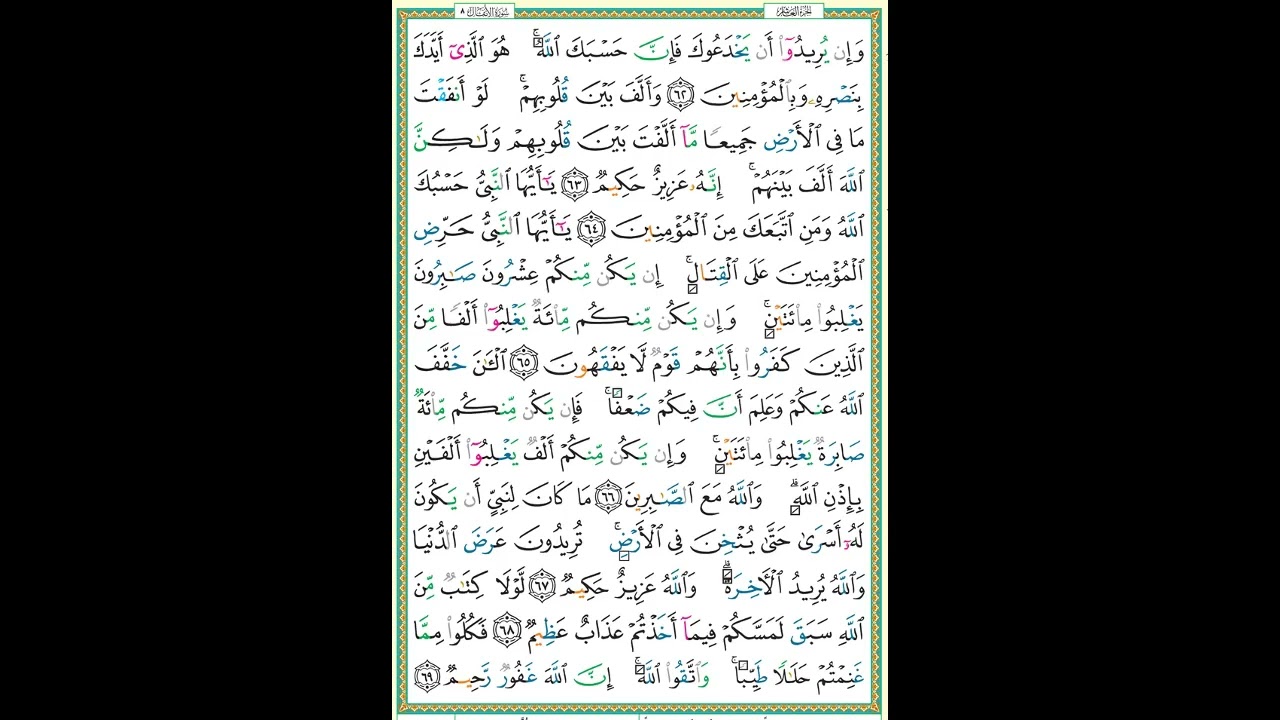 الجزء العاشر
سورة الأنفال ٨
وَإِن يُرِيدُوٓا۟ أَن يَخْدَعُوكَ فَإِنَّ حَسْبَكَ ٱللَّهُ ۚ هُوَ ٱلَّذِىٓ أَيَّدَكَ
بِنَصْرِهِۦ وَبِٱلْمُؤْمِنِينَ ٦٢ وَأَلَّفَ بَيْنَ قُلُوبِهِمْ ۚ لَوْ أَنفَقْتَ
مَا فِى ٱلْأَرْضِ جَمِيعًا مَّآ أَلَّفْتَ بَيْنَ قُلُوبِهِمْ وَلَـٰكِنَّ
ٱللَّهَ أَلَّفَ بَيْنَهُمْ ۚ إِنَّهُۥ عَزِيزٌ حَكِيمٌ ٦٣ يَـٰٓأَيُّهَا ٱلنَّبِىُّ حَسْبُكَ
ٱللَّهُ وَمَنِ ٱتَّبَعَكَ مِنَ ٱلْمُؤْمِنِينَ ٦٤ يَـٰٓأَيُّهَا ٱلنَّبِىُّ حَرِّضِ
ٱلْمُؤْمِنِينَ عَلَى ٱلْقِتَالِ ۚ إِن يَكُن مِّنكُمْ عِشْرُونَ صَـٰبِرُونَ
يَغْلِبُوا۟ مِا۟ئَتَيْنِ ۚ وَإِن يَكُن مِّنكُم مِّا۟ئَةٌ يَغْلِبُوٓا۟ أَلْفًا مِّنَ
ٱلَّذِينَ كَفَرُوا۟ بِأَنَّهُمْ قَوْمٌ لَّا يَفْقَهُونَ ٦٥ ٱلْـَٔـٰنَ خَفَّفَ
ٱللَّهُ عَنكُمْ وَعَلِمَ أَنَّ فِيكُمْ ضَعْفًا ۚ فَإِن يَكُن مِّنكُم مِّا۟ئَةٌ
صَابِرَةٌ يَغْلِبُوا۟ مِا۟ئَتَيْنِ ۚ وَإِن يَكُن مِّنكُمْ أَلْفٌ يَغْلِبُوٓا۟ أَلْفَيْنِ
بِإِذْنِ ٱللَّهِ ۗ وَٱللَّهُ مَعَ ٱلصَّـٰبِرِينَ ٦٦ مَا كَانَ لِنَبِىٍّ أَن يَكُونَ
لَهُۥٓ أَسْرَىٰ حَتَّىٰ يُثْخِنَ فِى ٱلْأَرْضِ ۚ تُرِيدُونَ عَرَضَ ٱلدُّنْيَا
وَٱللَّهُ يُرِيدُ ٱلْـَٔاخِرَةَ ۗ وَٱللَّهُ عَزِيزٌ حَكِيمٌ ٦٧ لَّوْلَا كِتَـٰبٌ مِّنَ
ٱللَّهِ سَبَقَ لَمَسَّكُمْ فِيمَآ أَخَذْتُمْ عَذَابٌ عَظِيمٌ ٦٨ فَكُلُوا۟ مِمَّا
غَنِمْتُمْ حَلَـٰلًا طَيِّبًا ۚ وَٱتَّقُوا۟ ٱللَّهَ ۚ إِنَّ ٱللَّهَ غَفُورٌ رَّحِيمٌ ٦٩